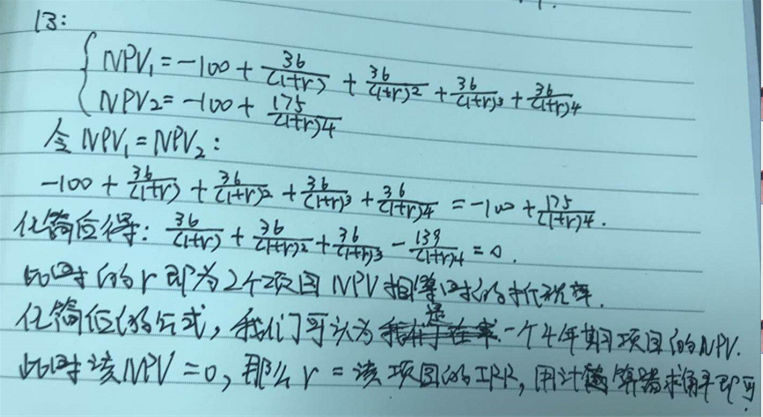 13:
NPV₁ = -100 + 36/(1+r) + 36/(1+r)² + 36/(1+r)³ + 36/(1+r)⁴
NPV₂ = -100 + 175/(1+r)⁴
令 NPV₁ = NPV₂:
-100 + 36/(1+r) + 36/(1+r)² + 36/(1+r)³ + 36/(1+r)⁴ = -100 + 175/(1+r)⁴.
化简后得: 36/(1+r) + 36/(1+r)² + 36/(1+r)³ - 139/(1+r)⁴ = 0.
此时的 r 即为2个项目 NPV 相等时的折现率.
化简后的公式, 我们可认为是一个4年期项目的NPV.
此时该NPV = 0, 那么 r = 该项目的IRR, 用计算器求解即可